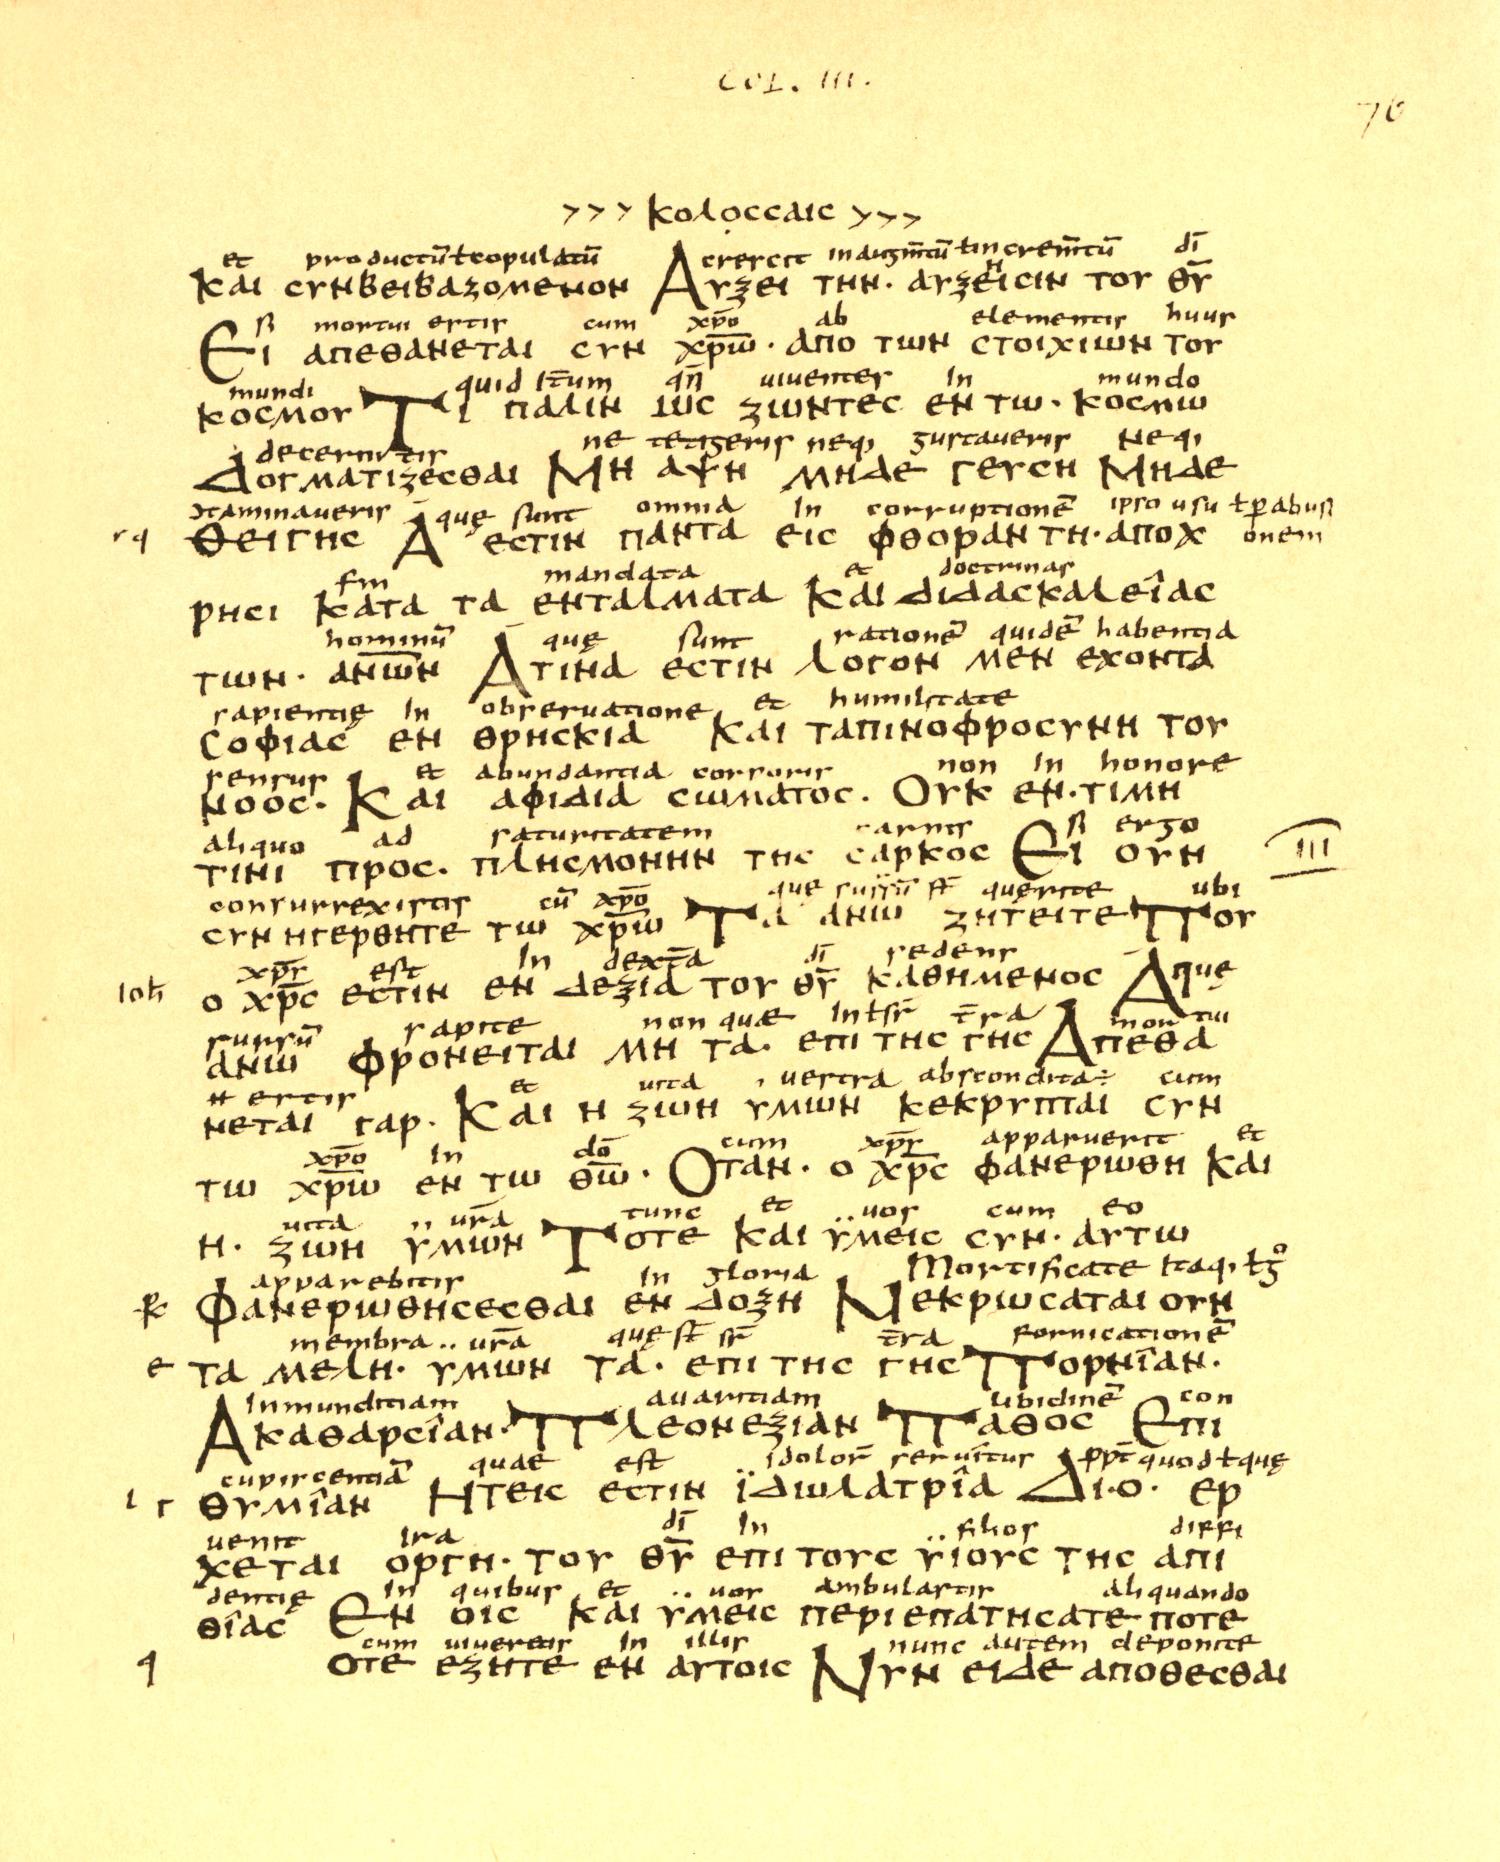 COL. III.
76
>>> κολοссαιс >>>
et productū ł copulatū crescit in augm̄tū ł in crem̄tū dī
και сυνβειβαζομενον Αυξει την· αυξειсιν του θ̅υ̅
η
si mortui estis cum xp̄o ab elementis huus
Ει απεθανεται сυν χ̅ρ̅ω̅· απο των сτοιχιων του
mundi quid it̄um qn̄ uiuentes in mundo
κοсμου Τι παλιν ωс ζωντεс εν τω· κοсμω
decernitis ne tetigeris neqi gustaueris Neqi
Δογματιζεсθαι Μη αψη μηδε γευсη Μηδε
ɔtaminaueris quę sunt omnia in corruptionē ipso usu ł p abusi
rq θειγηс Α εсτιν παντα ειс φθοραν τη·αποχ onem
sm mandata et doctrinas
ρηсι κατα τα ενταλματα και διδαсκαλειαс
hominū quę sunt rationē quidē habentia
των· α̅ν̅ω̅ν̅ Ατινα εсτιν λογον μεν εχοντα
sapientię in obseruatione et humilitate
сοφιαс εν θρηсκια και ταπινοφροсυνη του
sensus et abundantia corporis non in honore
νοοс· Και αφιδια сωματοс· Ουκ εν·τιμη
aliquo ad saturitatem carnis si ergo
τινι προс· πληсμονην τηс сαρκοс Ει ουν
III
consurrexistis cū xp̄o que sursū st̄ querite ubi
сυν ηγερθητε τω χ̅ρ̅ω̅ Τα ανω ζητειτε Που
xp̄s est in dext̄a dī sedens quę
ioh̄ ο χ̅ρ̅с̅ εсτιν εν δεξια του θ̅υ̅ καθημενοс Α
sursū sapite non quæ int ł sr̄ t̄ra mortui
ανω φρονειται μη τα· επι τηс γηс Απεθα
estis et uita uestra abscondita÷ cum
νεται γαρ· Και η ζωη υμων κεκρυπται сυν
xp̄o in dō cum xp̄s apparuerit et
τω χ̅ρ̅ω̅ εν τω θ̅ω̅· Οταν· ο χ̅ρ̅с̅ φανερωθη και
uita ur̄a tunc et uos cum eo
η· ζωη υμων Τοτε και ϋμειс сυν· αυτω
apparebitis in gloria Mortificate itaqi ł g̊
φανερωθηсεсθαι εν δοξη Νεκρωсαται ουν
membra ur̄a quę st̄ sr̄ t̄ra fornicationē
ε τα μελη· ϋμων τα· επι τηс γηс Πορνιαν·
inmunditiam auaritiam libidinē con
Ακαθαρсιαν· Πλεονεξιαν Παθοс Επι
cupiscentiā quae est idolor̄ seruitus ppt̄ quod ł quę
ι γ θυμιαν Ητειс εсτιν ϊδωλατρια Δι·ο· ερ
uenit ira dī in filios diffi
χεται οργη· του θ̅υ̅ επι τουс ϋιουс τηс απι
dentię in quibus et uos ambulastis aliquando
θιαс Εν οιс και ϋμειс περιεπατηсατε ποτε
cum uiueretis in illis nunc autem deponite
q οτε εζητε εν αυτοιс Νυν ειδε αποθεсθαι